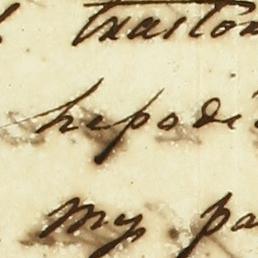 trastor
hepodi
my pa